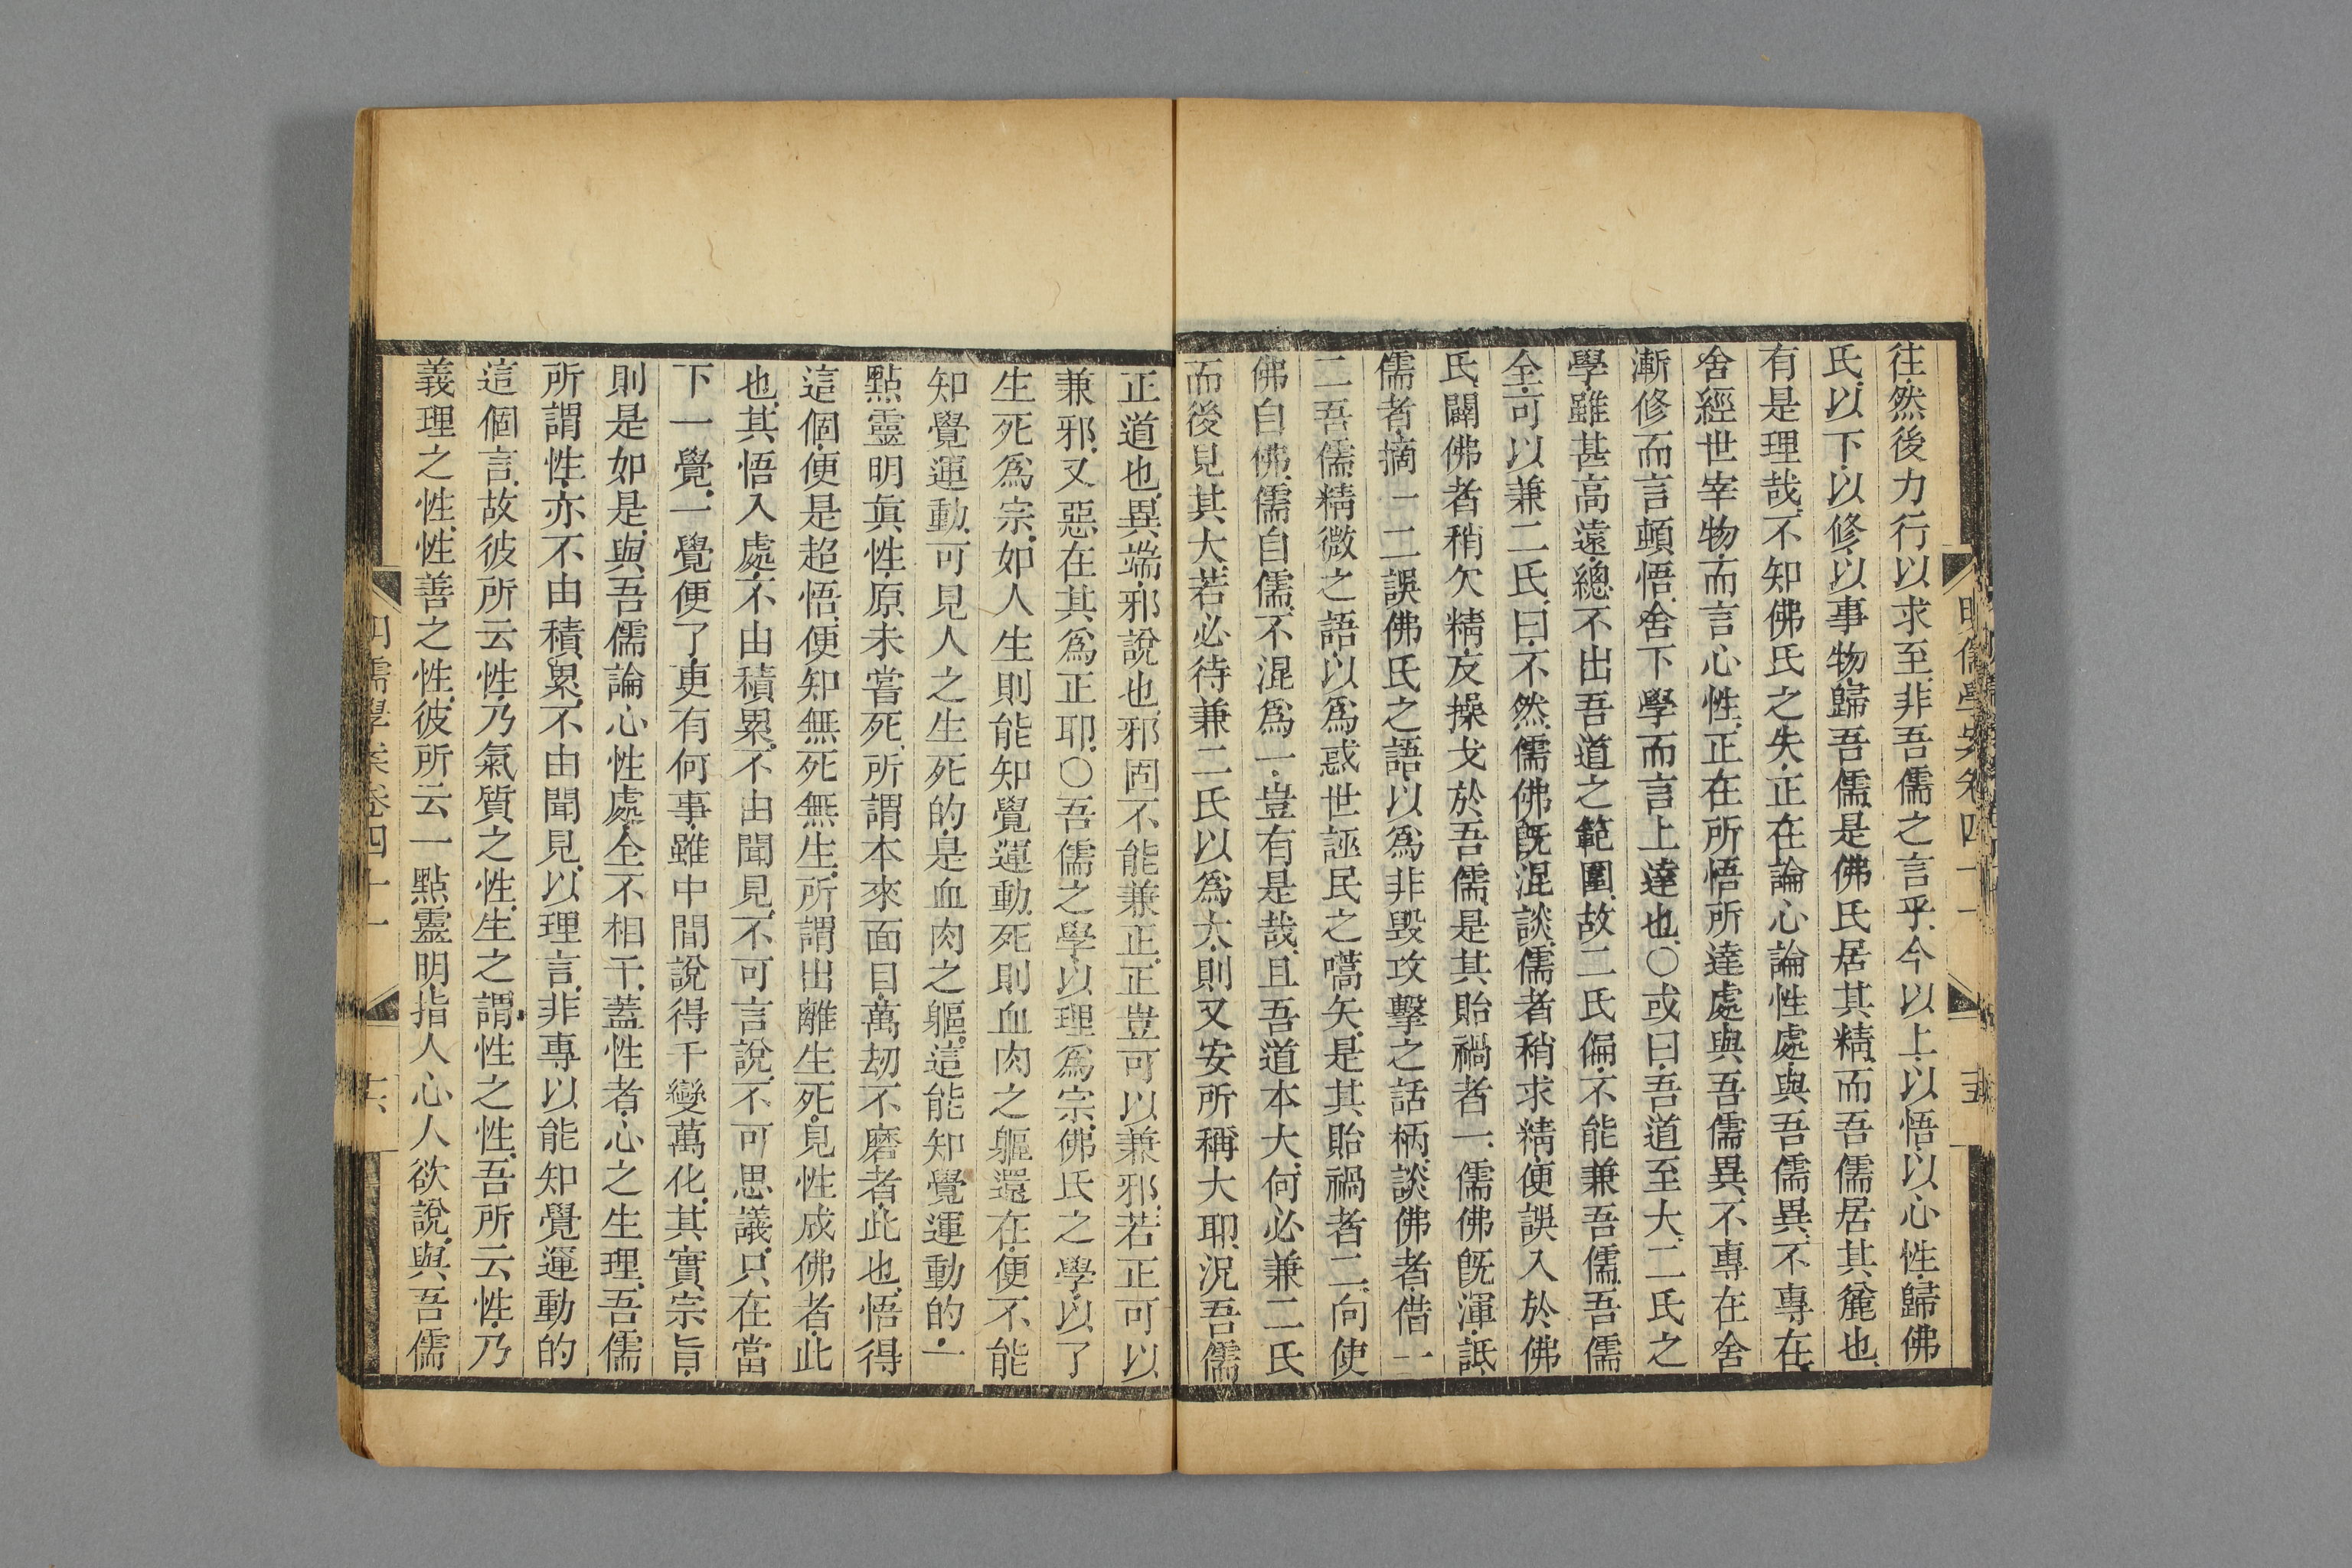 往然後力行以求至非吾儒之言乎今以上以悟以心性歸佛
氏以下以修以事物歸吾儒是佛氏居其精而吾儒居其麄也
有是理哉不知佛氏之失正在論心論性處與吾儒異不專在
舍經世宰物而言心性正在所悟所達處與吾儒異不專在舍
漸修而言頓悟舍下學而言上達也〇或曰吾道至大二氏之
學雖甚高遠總不出吾道之範圍故二氏偏不能兼吾儒吾儒
全可以兼二氏曰不然儒佛旣混談儒者稍求精便誤入於佛
氏闢佛者稍欠精反操戈於吾儒是其貽禍者一儒佛旣渾詆
儒者摘一二誤佛氏之語以爲非毀攻擊之話柄談佛者借一
二吾儒精微之語以爲惑世誣民之嚆矢是其貽禍者二向使
佛自佛儒自儒不混爲一豈有是哉且吾道本大何必兼二氏
而後見其大若必待兼二氏以爲大則又安所稱大耶況吾儒
正道也異端邪說也邪固不能兼正正豈可以兼邪若正可以
兼邪又惡在其爲正耶〇吾儒之學以理爲宗佛氏之學以了
生死爲宗如人生則能知覺運動死則血肉之軀還在便不能
知覺運動可見人之生死的是血肉之軀這能知覺運動的一
點靈明眞性原未嘗死所謂本來面目萬劫不磨者此也悟得
這個便是超悟便知無死無生所謂出離生死見性成佛者此
也其悟入處不由積累不由聞見不可言說不可思議只在當
下一覺一覺便了更有何事雖中間說得千變萬化其實宗旨
則是如是與吾儒論心性處全不相干蓋性者心之生理吾儒
所謂性亦不由積累不由聞見以理言非專以能知覺運動的
這個言故彼所云性乃氣質之性生之謂性之性吾所云性乃
義理之性性善之性彼所云一點靈明指人心人欲說與吾儒
明儒學案卷四十一
五
明儒學案卷四十一
六